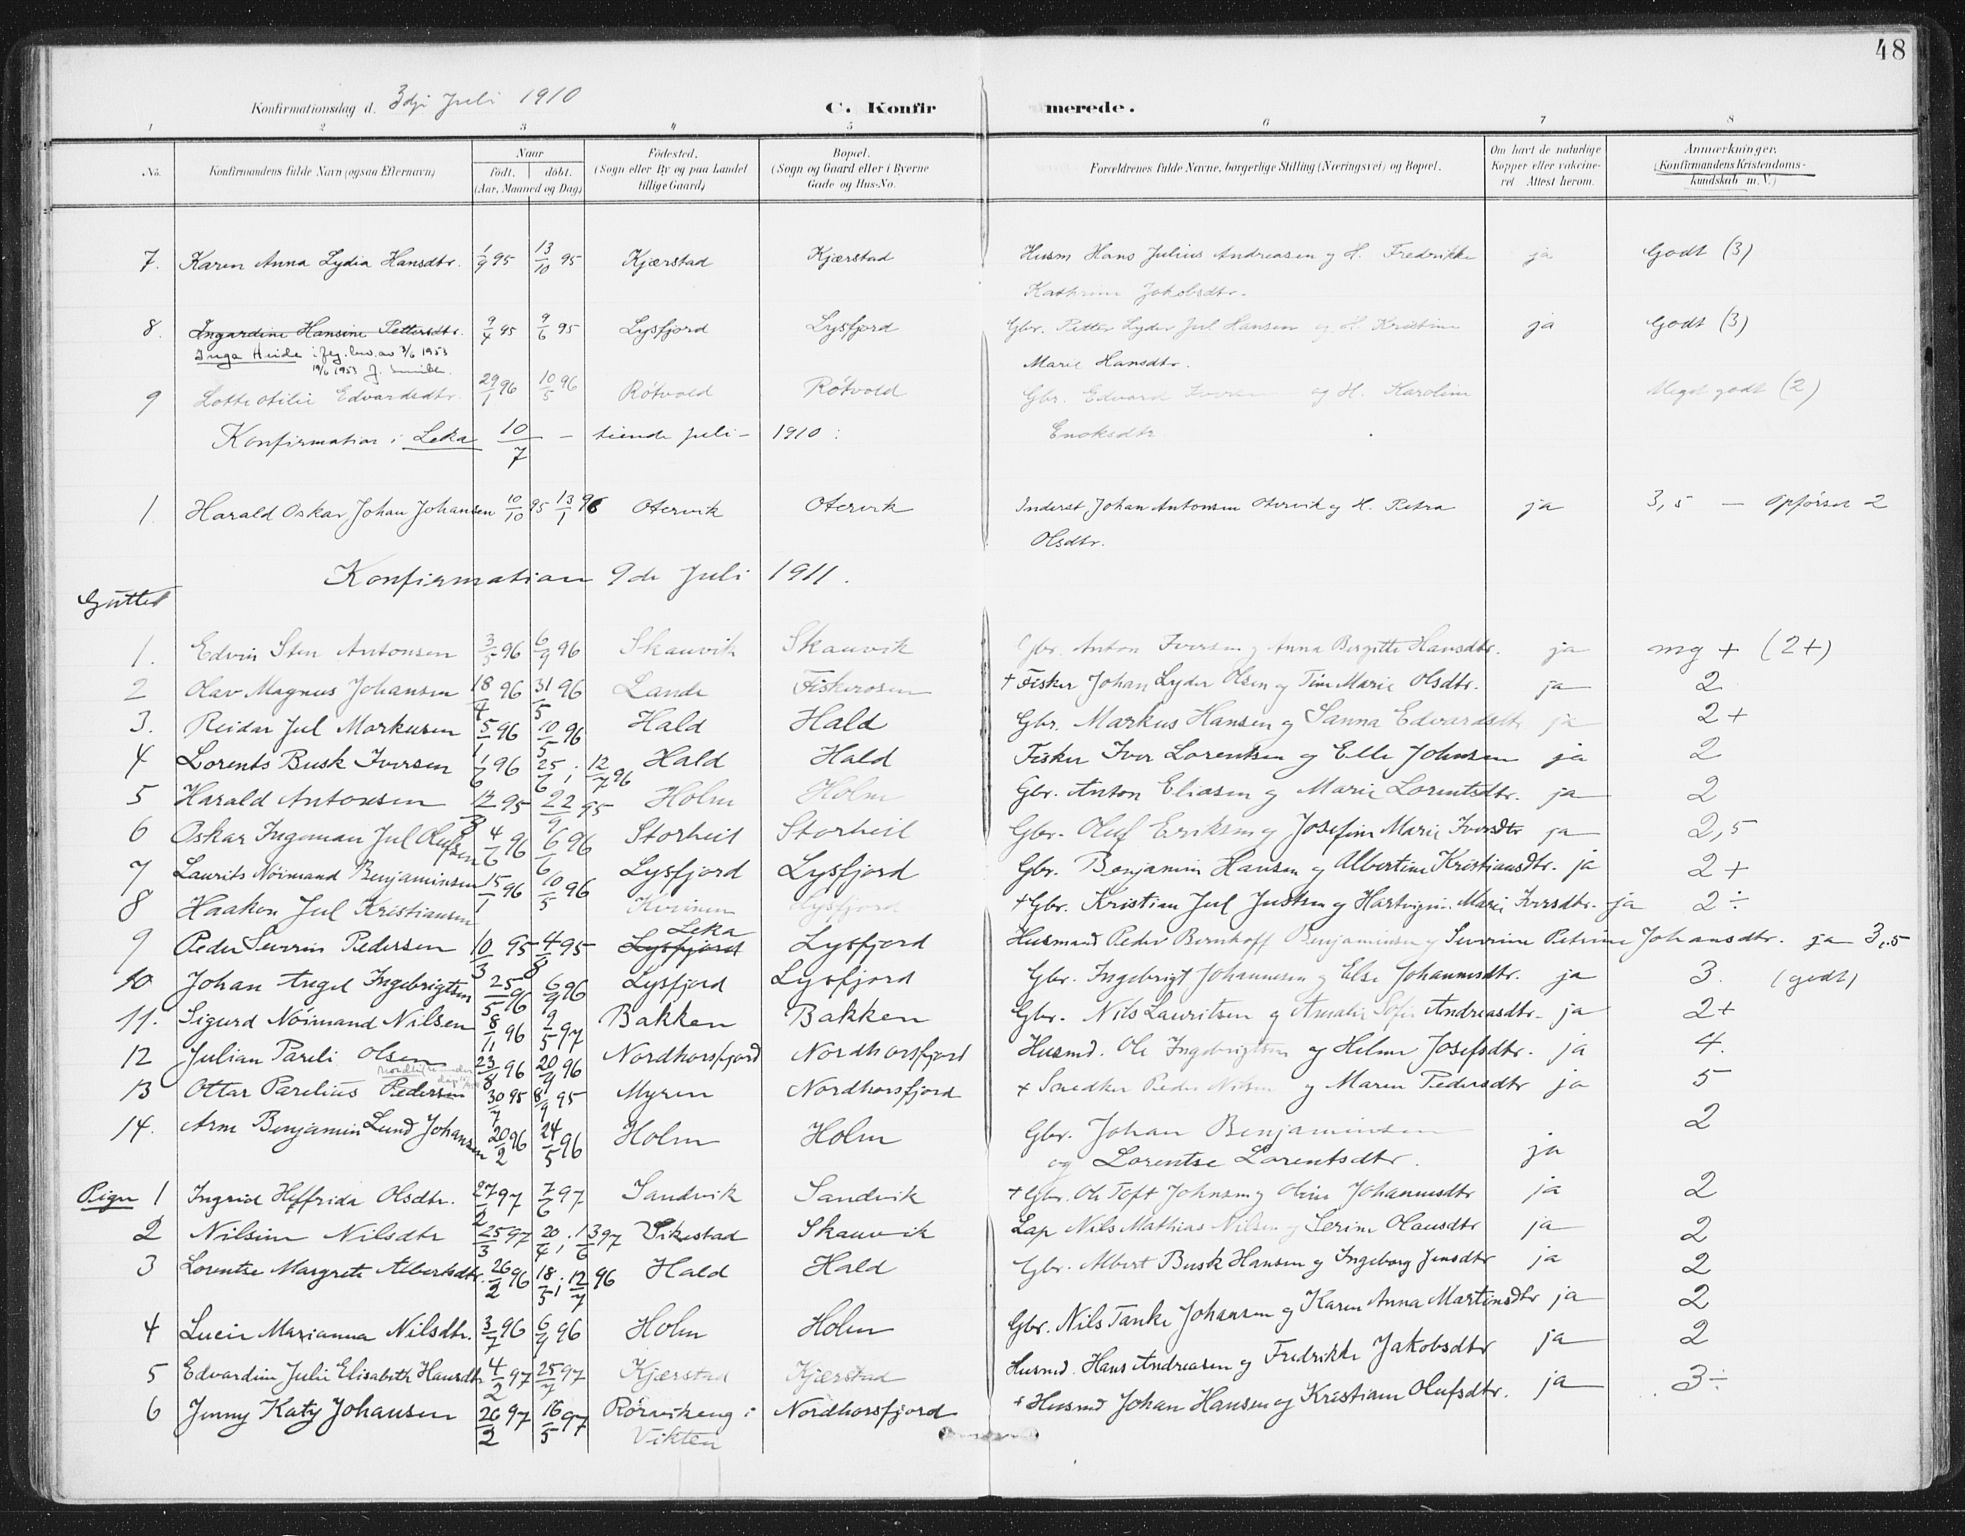 48
Konfirmationsdag d. 3dje Juli 1910
C. Konfirmerede.
1 2 3 4 5 6 7 8
No. Konfirmandens fulde Navn (ogsaa Efternavn) Naar født. døbt. (Aar, Maaned og Dag) Fødested. (Sogn eller By og paa Landet tillige Gaard) Bopæl. (Sogn og Gaard eller i Byerne Gade og Hus-No. Forældrenes fulde Navne, borgerlige Stilling (Næringsvei) og Bopæl. Om havt de naturlige Kopper eller vakcineret Attest herom. Anmærkninger. (Konfirmandens Kristendomskundskab m. V.)
7. Karen Anna Lydia Hansdtr. 1/9 95 13/10 95 Kjærstad Kjærstad Husm Hans Julius Andreasen og H. Fredrikke ja Godt (3)
Kathrine Jakobsdtr.
8. Ingardine Hansine Pettersdtr. 9/4 95 9/6 95 Lysfjord Lysfjord Gbr. Petter Lyder Jul Hansen og H. Kristine ja Godt (3)
Inga Heide i flg. bev. av 3/6 1953 Marie Hansdtr.
19/6 1953
9 Lotte Otilie Edvardsdtr. 29/1 96 10/5 96 Røtvold Røtvold Gbr. Edvard Iversen og H. Karoline Meget godt (2)
Enoksdtr
Konfirmation i Leka 10/7 - tiende juli - 1910:
1. Harald Oskar Johan Johansen 10/10 95 13/1 96 Otervik Otervik Inderst Johan Antonsen Otervik og H. Petra ja 3,5 - Opførsel 2
Olsdtr.
Konfirmation 9de Juli 1911.
Gutter
1. Edvin Sten Antonsen 3/5 96 6/9 96 Skauvik Skauvik Gbr. Anton Iversen og Anna Bergitte Hansdtr. ja mg + (2+)
2 Olav Magnus Johansen 18/4 96 31/5 96 Lande Fiskerosen + Fisker Johan Lyder Olsen og Tine Marie Olsdtr. ja 2
3. Reidar Jul Markusen 5/1 96 10/5 96 Hald Hald Gbr. Markus Hansen og Sanna Edvardsdtr ja 2+
4 Lorents Busk Iversen 1/6 96 25/6; 12/7 96 Hald Hald Fisker Iver Lorentsen og Elle Johnsen ja 2
5 Harald Antonsen 12/8 95 22/9 95 Holm Holm Gbr. Anton Eliasen og Marie Lorentsdtr. ja 2
6 Oskar Ingeman Jul Olufsen 4/6 96 6/6 96 Storheil Storheil Gbr. Oluf Eriksen og Josefine Marie Iversdtr ja 2,5
7 Laurits Nöimand Benjaminsen 15/1 96 10/5 96 Lysfjord Lysfjord Gbr. Benjamin Hansen og Albertine Kristiansdtr. ja 2+
8 Haakon Jul Kristiansen Lysfjord + Gbr. Kristian Jul Justsen og Hartvigine Marie Iversdtr. ja 2÷
9 Peder Severin Pedersen 10/3 95 4/8 95 Leka Lysfjord Lysfjord Husmand Peder Bernhoff Benjaminsen og Severine Petrine Johansdtr. ja 3,5
10 Johan Angel Ingebrigtsen 25/5 96 6/9 96 Lysfjord Lysfjord Gbr. Ingebrigt Johannesen og Else Johannesdtr. ja 3. (godt)
11. Sigurd Nöimand Nilsen 8/11 96 9/5 97 Bakken Bakken Gbr. Nils Lauritsen og Amalie Sofie Andreasdtr. ja 2+
12 Julian Pareli Olsen 23/8 96 20/9 96 Nordhorsfjord Nordhorsfjord Husmd. Ole Ingebrigtsen og Helene Josefsdtr. ja 4.
13 Ottar Parelius Pedersen 30/7 95 8/9 95 Myren Nordhorsfjord + Snedker Peder Nilsen og Maren Pedersdtr ja 5
14. Arne Benjamin Lund Johansen 20/2 96 24/5 96 Holm Holm Gbr. Johan Benjaminsen 2
og Lorentse Lorentsdtr. ja
Piger 1 Ingrid Heffrida Olsdtr. 27/2 97 7/6 97 Sandvik Sandvik + Gbr. Ole Toft Johnsen og Oline Johannesdtr ja 2
2 Nilsine Nilsdtr 25/3 97 20/4; 13/6 97 Vikestad Skauvik Lap Nils Mathias Nilsen og Serine Olausdtr ja 2
3 Lorentse Margrete Albertsdtr. 26/2 96 18/5; 12/7 96 Hald Hald Gbr. Albert Busk Hansen og Ingeborg Jensdtr ja 2
4 Lucie Marianna Nilsdtr. 3/7 96 6/9 96 Holm Holm Gbr. Nils Tanke Johansen og Karen Anna Martinsdtr ja 2
5 Edvardine Julie Elisabeth Hansdtr 4/2 97 25/7 97 Kjærstad Kjærstad Husmd. Hans Andreasen og Fredrikke Jakobsdtr ja 2
6 Jenny Katy Johansen 26/2 97 16/5 97 Rörvikeng i Nordhorsfjord + Husmd Johan Hansen og Kristiane Olufsdtr. ja 3÷
Vikten